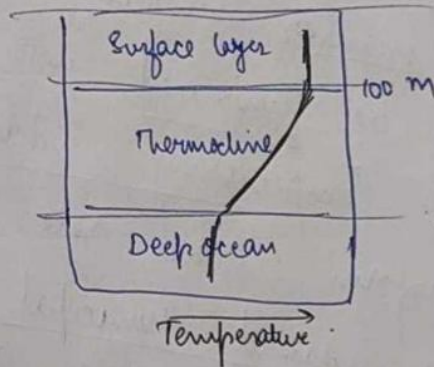 Surface layer
100 m
Thermocline
Deep ocean
Temperature